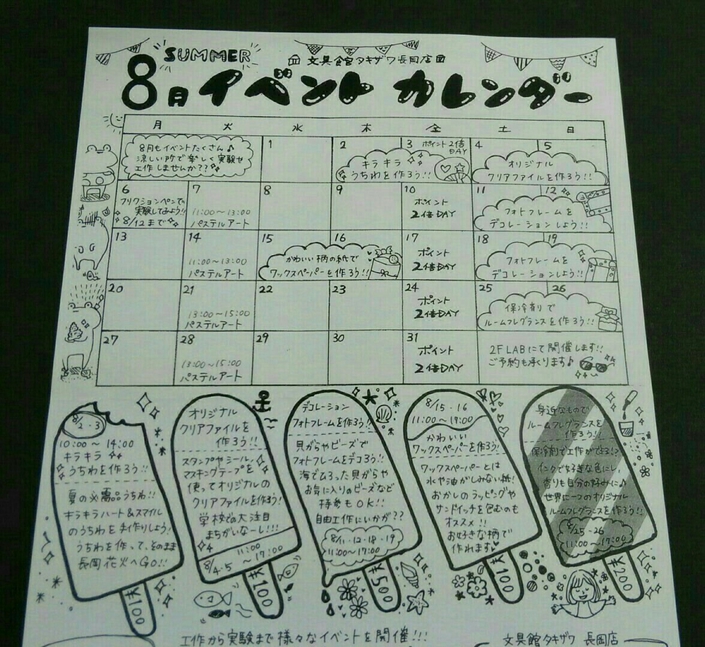 SUMMER
文具館タキザワ長岡店
8月イベントカレンダー
月 火 水 木 金 土 日
8月もイベントたくさん♪
涼しい所で楽しく実験や
工作しませんか??
1
2
3 ポイント2倍DAY
キラキラ
うちわを作ろう!!
4 5
オリジナル
クリアファイルを作ろう!!
6
フリクションペンで
実験してみよう!!
8/12まで
7
11:00〜13:00
パステルアート
8
9
10
ポイント
2倍DAY
11 12
フォトフレームを
デコレーションしよう!!
13
14
11:00〜13:00
パステルアート
15 16
かわいい柄の紙で
ワックスペーパーを作ろう!!
17
ポイント
2倍DAY
18 19
フォトフレームを
デコレーションしよう!!
20
21
13:00〜15:00
パステルアート
22
23
24
ポイント
2倍DAY
25 26
保冷剤で
ルームフレグランスを作ろう!!
27
28
13:00〜15:00
パステルアート
29
30
31
ポイント
2倍DAY
2F LABにて開催します!!
ご予約も承ります♪
8/2・3
10:00〜19:00
キラキラ
うちわを作ろう!!
夏の必需品うちわ!!
キラキラハート&スマイル
のうちわを手作りしよう!
うちわを作って、そのまま
長岡花火へGO!!
100
オリジナル
クリアファイルを
作ろう!!
スタンプやシール、
マスキングテープを
使ってオリジナルの
クリアファイルを作ろう!
学校での大注目
まちがいなし!!!
11:00
8/4・5 〜17:00
100
デコレーション
フォトフレームを作ろう!!
貝がらやビーズで
フォトフレームをデコろう!!
海でひろった貝がらや
お気に入りのビーズなど
持参もOK!!
自由工作にいかが??
8/11・12・18・19
11:00〜17:00
500
8/15・16
11:00〜19:00
かわいい
ワックスペーパーを作ろう!!
ワックスペーパーとは
水や油がしみない紙!
おかしのラッピングや
サンドイッチを包むのも
オススメ!!
お好きな柄で
作れます
100
身近なもので
ルームフレグランスを
作ろう!!
保冷剤で工作ができる!?
インクで好きな色にし
香りも自分の好みに♪
世界に一つのオリジナル
ルームフレグランスを作ろう!!
8/25・26
11:00〜17:00
工作から実験まで様々なイベントを開催!!!
文具館タキザワ 長岡店